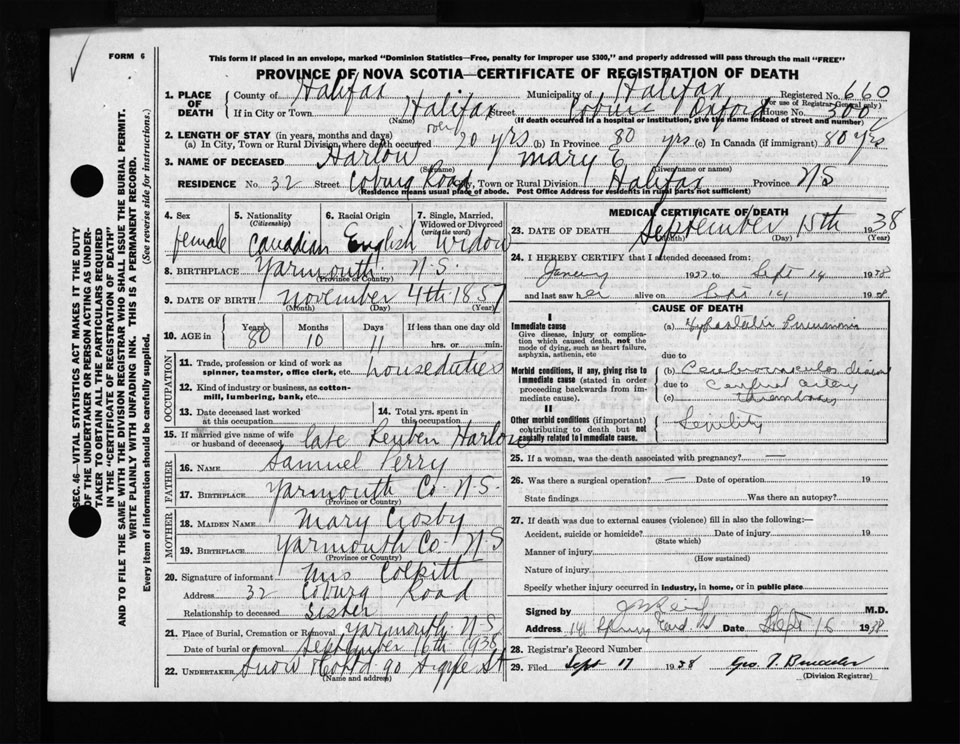 FORM 6
This form if placed in an envelope, marked "Dominion Statistics—Free, penalty for improper use $300," and properly addressed will pass through the mail "FREE"
PROVINCE OF NOVA SCOTIA—CERTIFICATE OF REGISTRATION OF DEATH
1. PLACE OF DEATH County of Halifax Municipality of Halifax Registered No. 660
(For use of Registrar General only)
If in City or Town Halifax Street Oxford House No. 300
(Name) (If death occurred in a hospital or institution, give the name instead of street and number)
2. LENGTH OF STAY (in years, months and days)
(a) In City, Town or Rural Division where death occurred over 20 yrs (b) In Province 80 yrs (c) In Canada (if immigrant) 80 yrs
3. NAME OF DECEASED Harlow Mary E
(Surname) (Given name or names)
RESIDENCE No. 32 Street Coburg Road City, Town or Rural Division Halifax Province N S
(Residence means usual place of abode. Post Office Address for residents in rural parts not sufficient)
4. Sex 5. Nationality (Citizenship) 6. Racial Origin 7. Single, Married, Widowed or Divorced (write the word)
female Canadian English Widow
8. BIRTHPLACE Yarmouth N.S.
(Province or Country)
9. DATE OF BIRTH November 4th 1857
(Month) (Day) (Year)
10. AGE in Years Months Days If less than one day old
80 10 11 hrs. or min.
OCCUPATION
11. Trade, profession or kind of work as spinner, teamster, office clerk, etc. houseduties
12. Kind of industry or business, as cotton-mill, lumbering, bank, etc.
13. Date deceased last worked at this occupation 14. Total yrs. spent in this occupation
15. If married give name of wife or husband of deceased late Reuben Harlow
FATHER
16. NAME Samuel Perry
17. BIRTHPLACE Yarmouth Co. N.S.
(Province or Country)
MOTHER
18. MAIDEN NAME Mary Crosby
19. BIRTHPLACE Yarmouth Co. N S
(Province or Country)
20. Signature of informant Mrs Colpitt
Address 32 Coburg Road
Relationship to deceased Sister
21. Place of Burial, Cremation or Removal Yarmouth N.S.
Date of burial or removal September 16th 1938
22. UNDERTAKER Snow & Co Ltd 90 Argyle St
(Name and address)
MEDICAL CERTIFICATE OF DEATH
23. DATE OF DEATH September 15th 1938
(Month) (Day) (Year)
24. I HEREBY CERTIFY that I attended deceased from:
19 to Sept 14 1938
and last saw her alive on Sept 14 1938
CAUSE OF DEATH
I
Immediate cause
Give disease, injury or complication which caused death, not the mode of dying, such as heart failure, asphyxia, asthenia, etc
(a) Hypostatic Pneumonia
due to
Morbid conditions, if any, giving rise to immediate cause (stated in order proceeding backwards from immediate cause).
(b)
due to artery
(c) thrombosis
II
Other morbid conditions (if important) contributing to death but not causally related to immediate cause.
Senility
25. If a woman, was the death associated with pregnancy? —
26. Was there a surgical operation? — Date of operation 19
State findings Was there an autopsy?
27. If death was due to external causes (violence) fill in also the following:—
Accident, suicide or homicide? Date of injury 19
(State which)
Manner of injury
(How sustained)
Nature of injury
Specify whether injury occurred in industry, in home, or in public place
Signed by M.D.
Address Date Sept 16 1938
28. Registrar's Record Number
29. Filed Sept 17 1938 Geo. T.
(Division Registrar)
SEC. 46—VITAL STATISTICS ACT MAKES IT THE DUTY
OF THE UNDERTAKER OR PERSON ACTING AS UNDER-
TAKER TO OBTAIN ALL THE PARTICULARS REQUIRED
IN THE "CERTIFICATE OF REGISTRATION OF DEATH"
AND TO FILE THE SAME WITH THE DIVISION REGISTRAR WHO SHALL ISSUE THE BURIAL PERMIT.
WRITE PLAINLY WITH UNFADING INK. THIS IS A PERMANENT RECORD.
Every item of information should be carefully supplied. (See reverse side for instructions.)